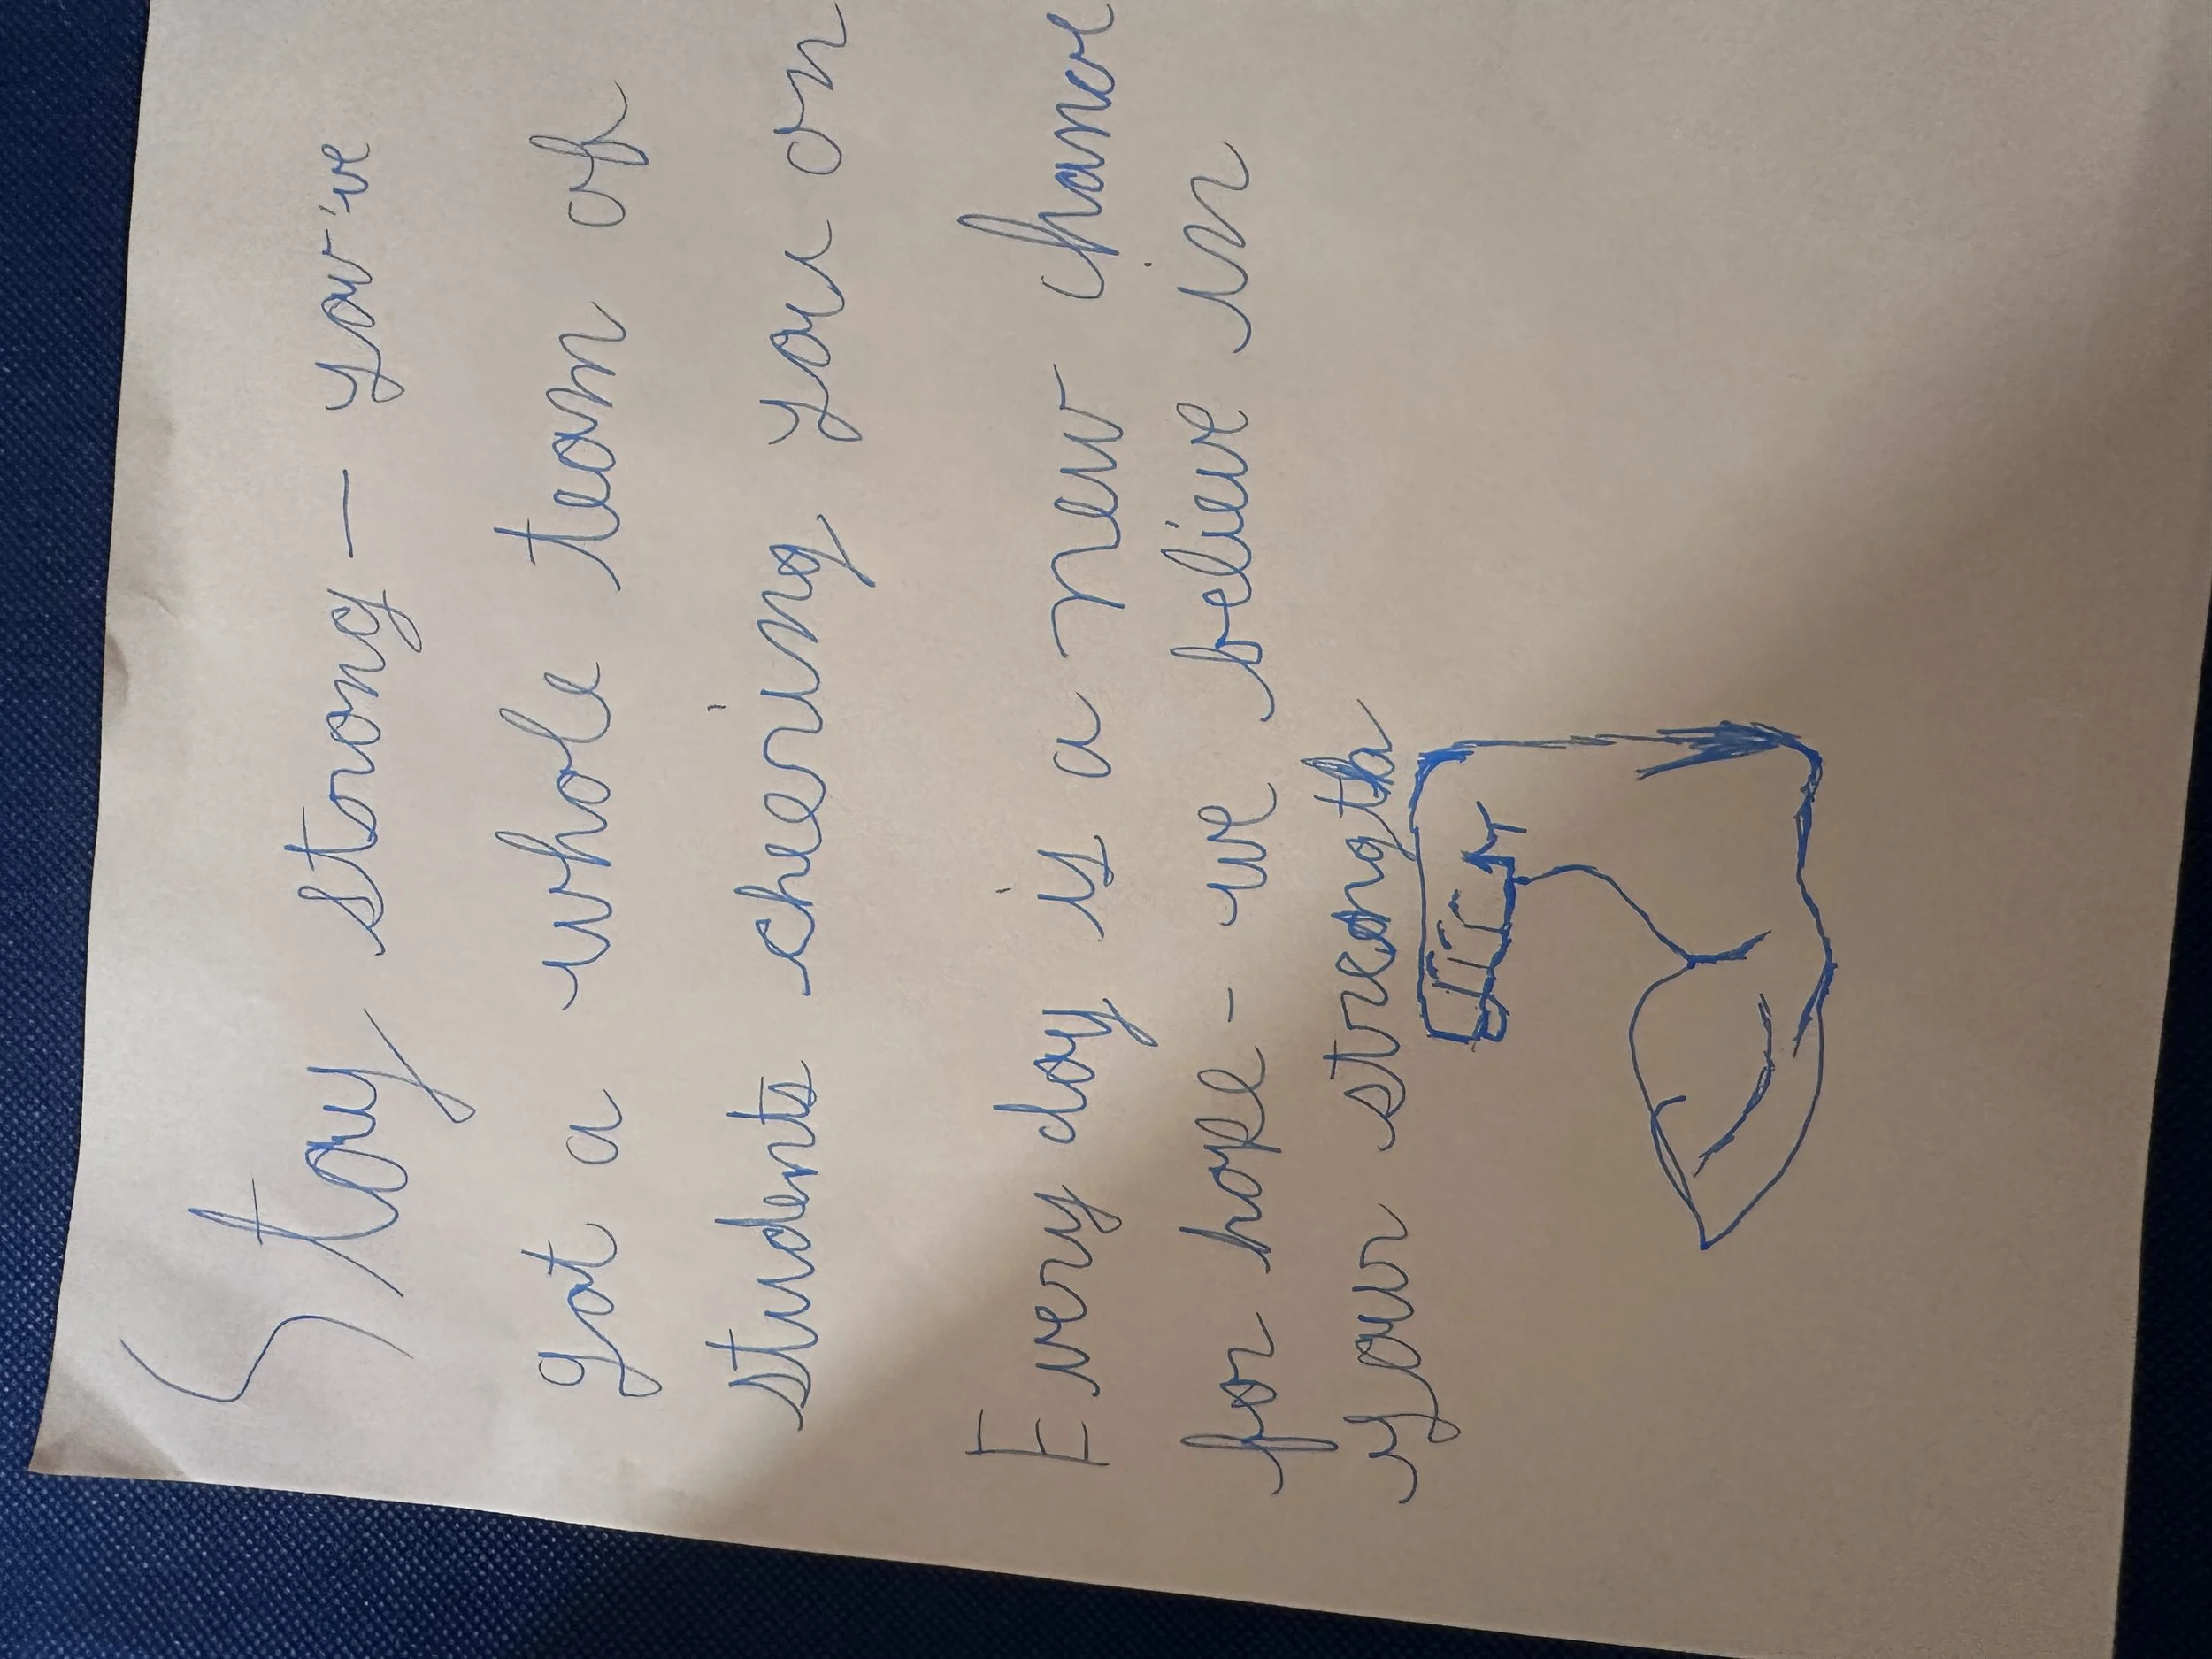 Stay strong — you've
got a whole team of
students cheering you on
Every day is a new chance
for hope - we believe in
your strength